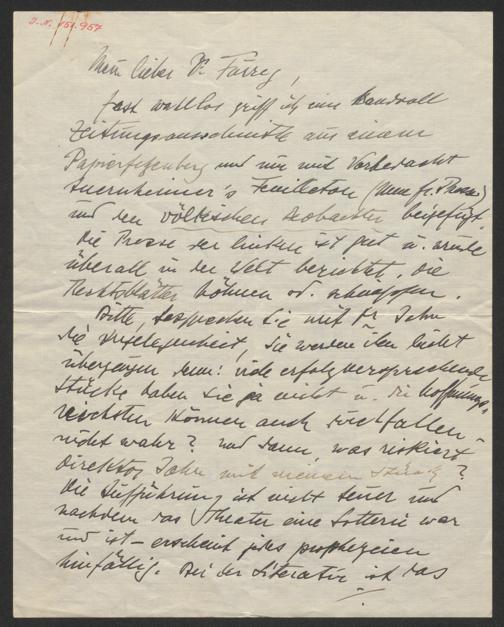 I.N. 151.957
Mein lieber Dr. Furreg,
fast wahllos griff ich eine Handvoll
Zeitungsausschnitte aus einem
Papierfetzenberg und nur mit Vorbedacht
Auernheimer's Feuilleton (Neue fr. Presse)
und den völkischen Beobachter beigefügt.
Die Presse der linken ist gut u. wurde
überall in der Welt berichtet, die
Rechtsblätter höhnen od. schweigen.
Bitte, besprechen Sie mit Dr Jahn
die Angelegenheit, Sie werden ihn leicht
überzeugen denn: viele erfolgversprechende
Stücke haben Sie ja nicht u. die hoffnungs-
reichsten können auch durchfallen -
nicht wahr? und dann, was riskiert
Direktor Jahn mit meinem Stück?
Die Aufführung ist nicht teuer und
nachdem das Theater eine Lotterie war
und ist - erscheint jedes prophezeien
hinfällig. Bei der Literatur ist das